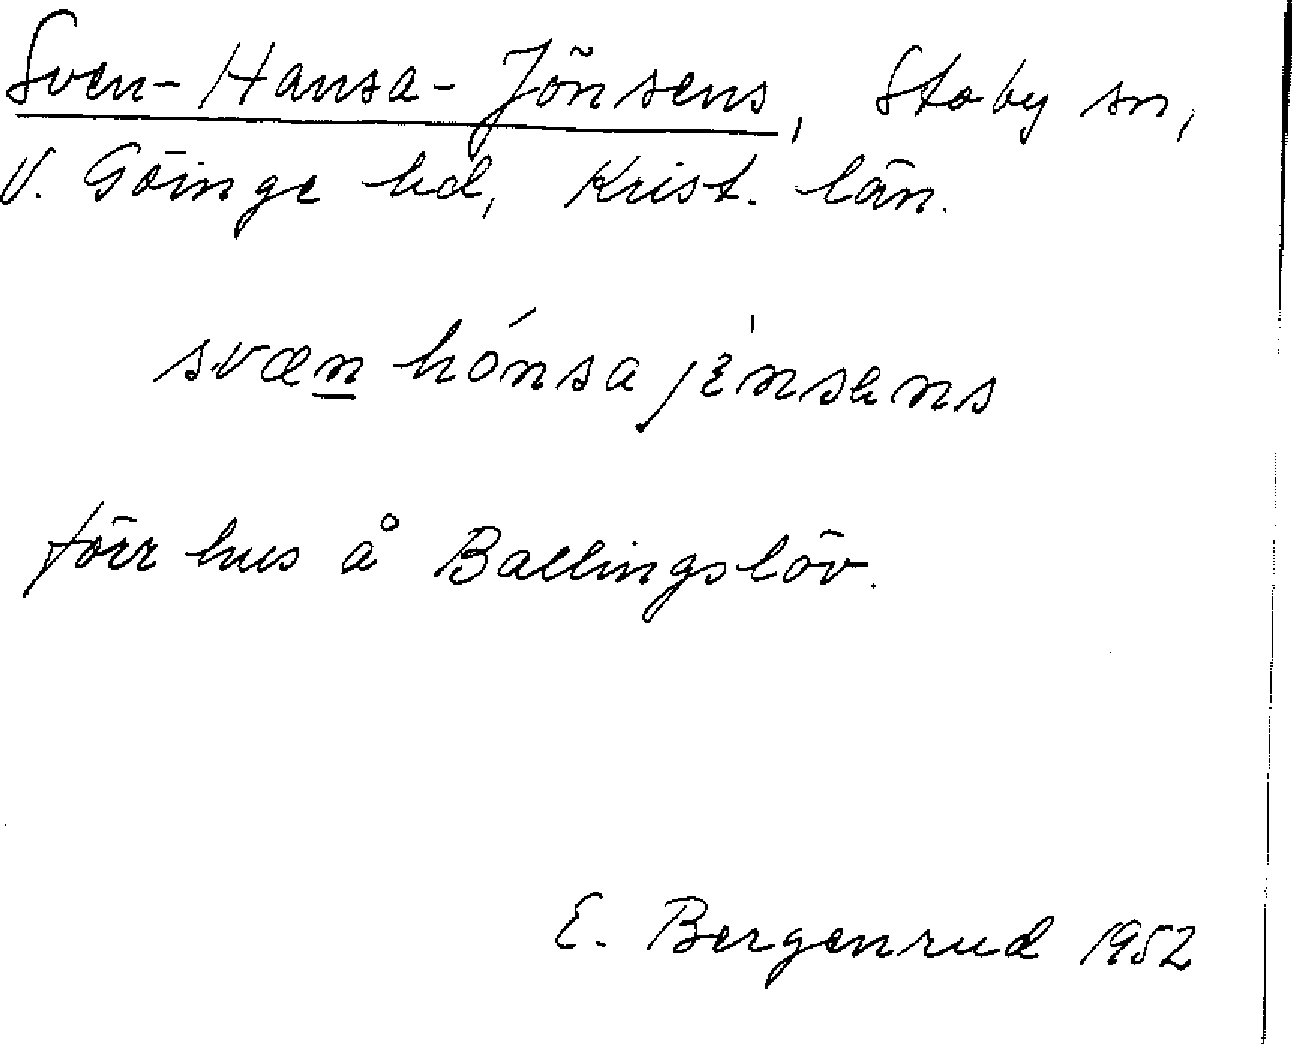 Sven-Hansa-Jönsens, Stoby sn,
V. Göinge hd, Krist. län.
svæn hónsa jènsens
förr hus å Ballingslöv.
E. Bergenrud 1952